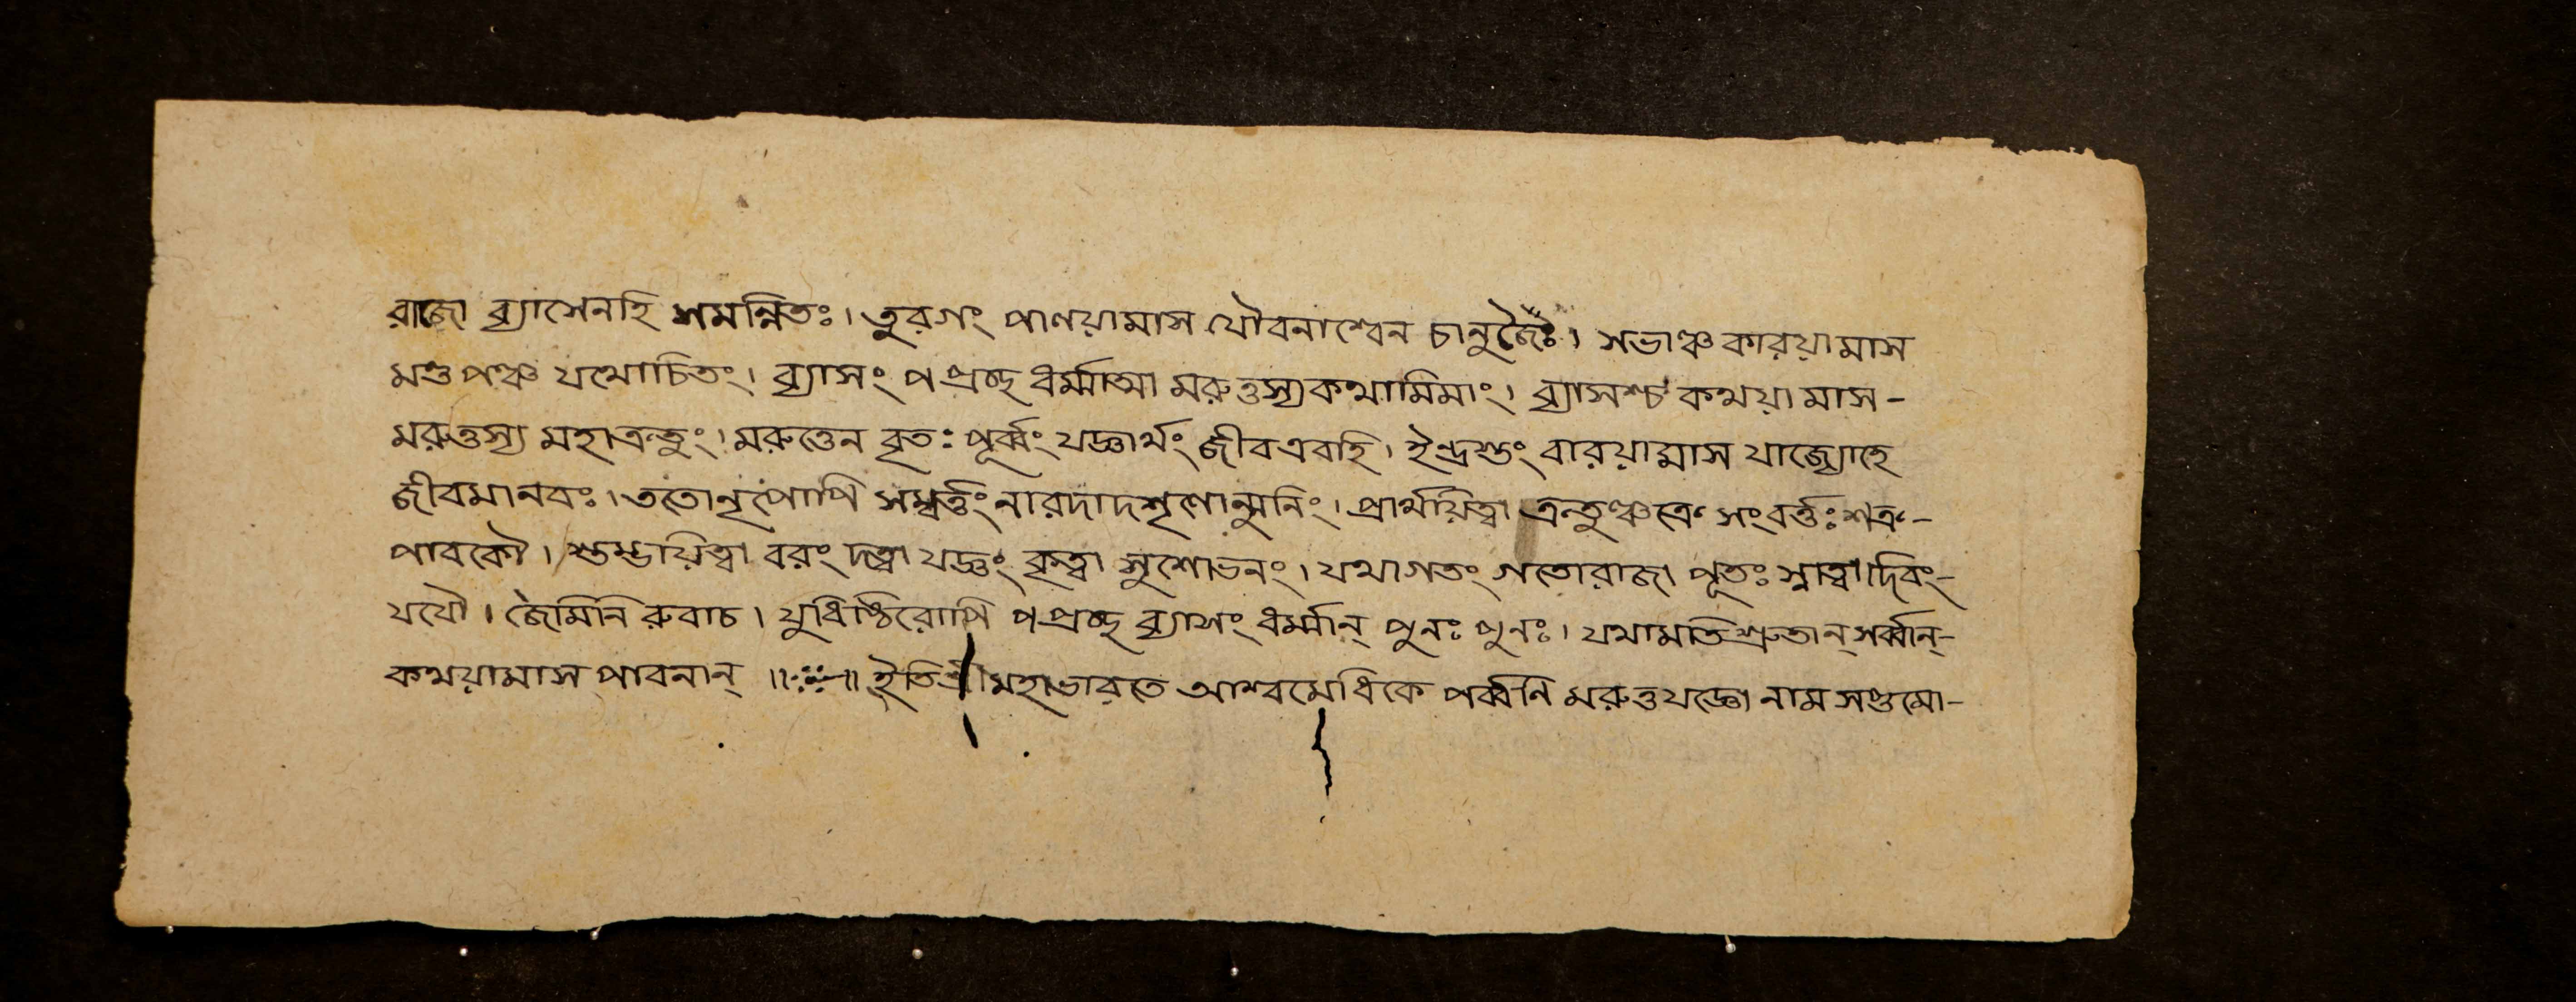 রাজা ব্যাসেনহি সমন্বিতঃ। তুরগং পাণয়ামাস যৌবনাশ্বেন চানুজৈঃ। সভাঞ্চ কারয়ামাস
মণ্ডপঞ্চ যথোচিতং। ব্যাসং পপ্রচ্ছ ধর্ম্মাত্মা মরুত্তস্যকথামিমাং। ব্যাসশ্চ কথয়ামাস-
মরুত্তস্য মহাক্রতুং। মরুত্তেন বৃতঃ পূর্ব্বং যজ্ঞার্থং জীবএবহি। ইন্দ্রস্তং বারয়ামাস যাজ্যোহে
জীবমানবঃ। ততোনৃপোপি সম্বর্ত্তং নারদাদশৃণোন্মুনিং। প্রার্থয়িত্বা ক্রতুঞ্চক্রে সংবর্ত্তঃ শক্র-
পাবকৌ। স্তম্ভয়িত্বা বরং দত্বা যজ্ঞং কৃত্বা সুশোভনং। যথাগতং গতোরাজা পূতঃ স্নাত্বা দিবং-
যযৌ। জৈমিনি রুবাচ। যুধিষ্ঠিরোপি পপ্রচ্ছ ব্যাসং ধর্ম্মান্ পুনঃ পুনঃ। যথামতিশ্রুতান্ সর্ব্বান্-
কথয়ামাস পাবনান্ ॥ ॥ ইতিশ্রীমহাভারতে আশ্বমেধিকে পর্ব্বনি মরুত্তযজ্ঞো নাম সপ্তমো-